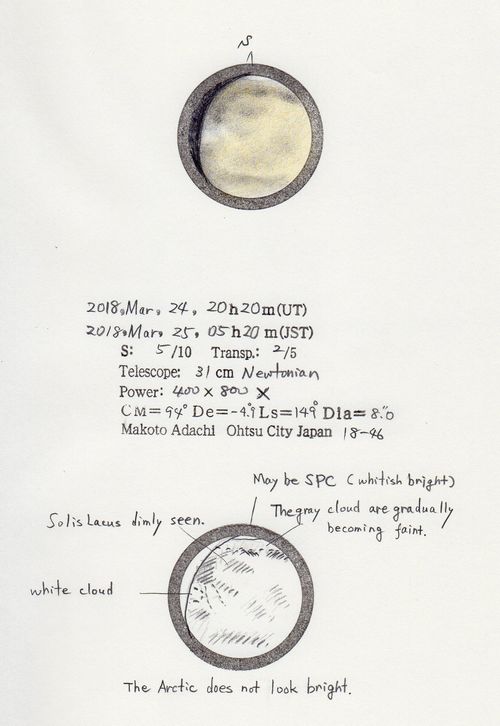 S
2018, Mar, 24, 20h20m(UT)
2018, Mar, 25, 05h20m(JST)
S: 5/10 Transp.: 2/5
Telescope: 31cm Newtonian
Power: 400× 800×
CM=94° De=-4.9° Ls=149° Dia=8.″0
Makoto Adachi Ohtsu City Japan 18-46
May be SPC (whitish bright)
The gray cloud are gradually
becoming faint.
Solis Lacus dimly seen.
white cloud
The Arctic does not look bright.